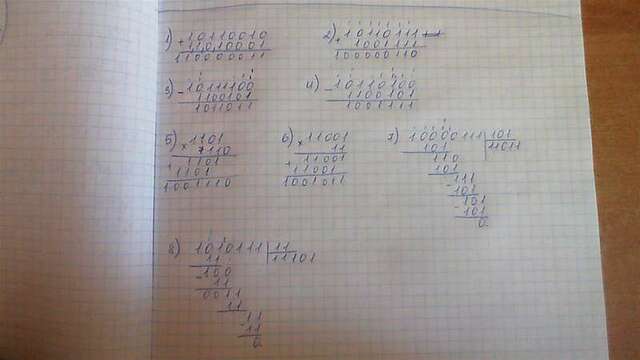 1) + 10110010
11010001
110000011
2) + 10110111
1001111
100000110
3) - 10111100
1100101
1011011
4) - 10110100
1100101
1001111
5) × 1101
110
+ 1101
1101
1001110
6) × 11001
11
+ 11001
11001
1001011
7) 10000111 101
101 11011
110
101
111
- 101
101
- 101
0
8) 1010111 11
11 11101
- 100
11
0011
11
11
- 11
0